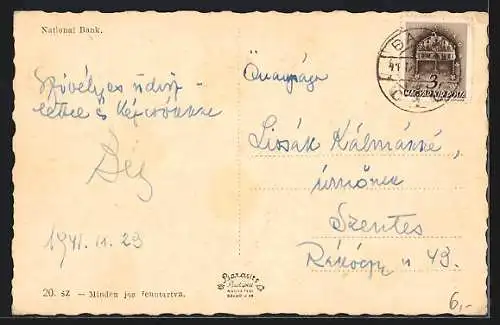 National Bank.
Szívélyes üdvöz-
letre és kézcsókkal
Béla
1941. 11. 23
Őnagysága
Lissák Kálmánné,
úrnőnek
Szentes
Rákóczy u 43.
3
MAGYAR KIR. POSTA
Barasits
Budapest
20. sz - Minden jog fenntartva.
6,-